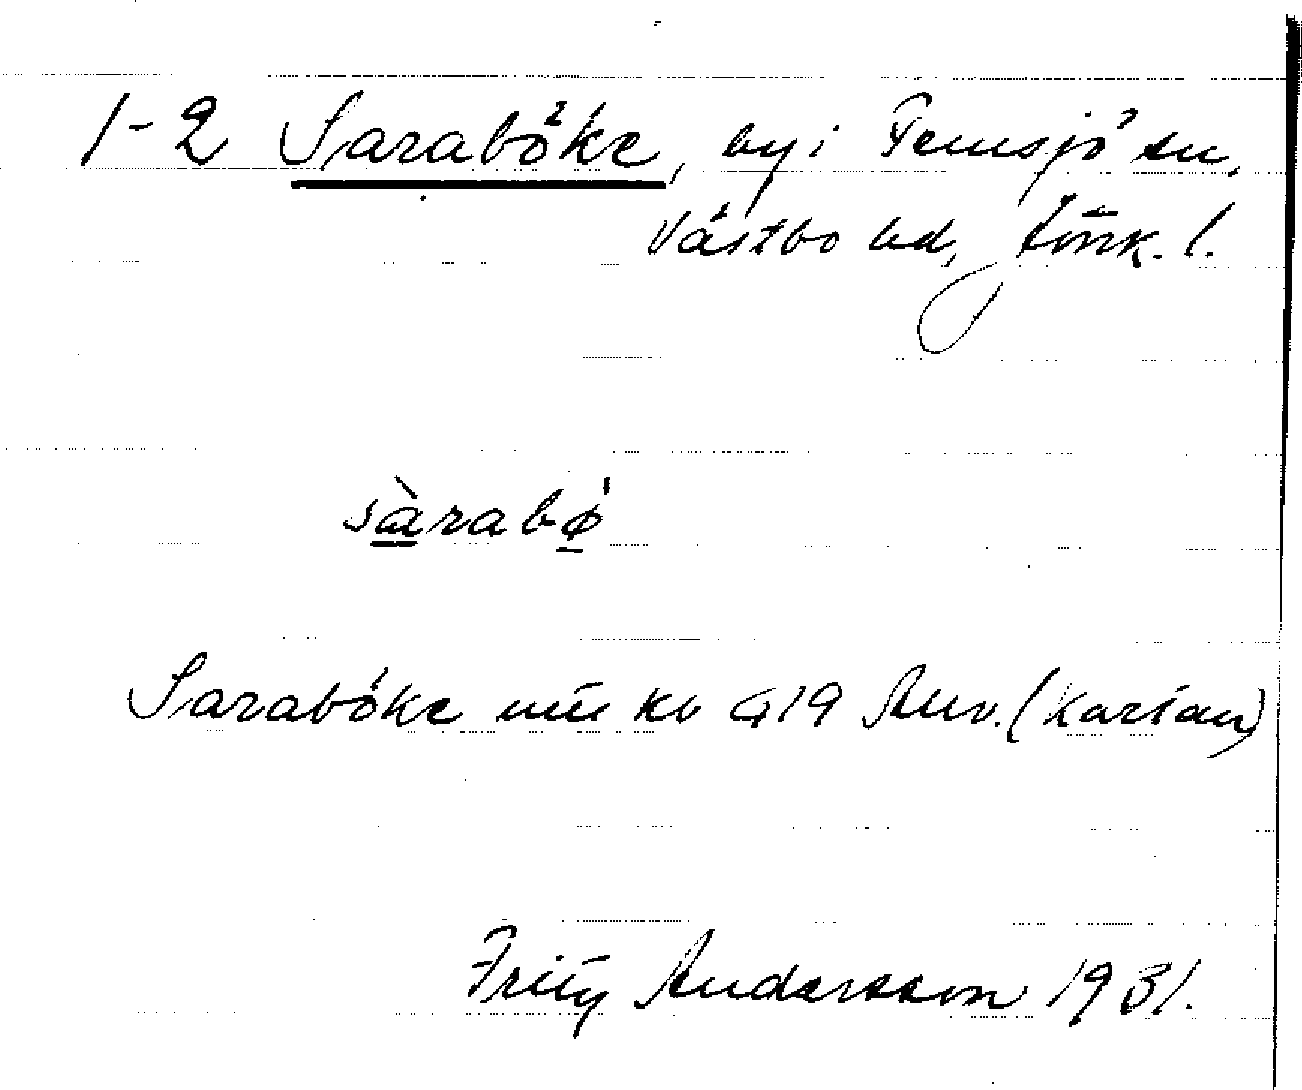 1-2 Saraböke, by i Femsjö sn,
Västbo hd, Jönk. l.
sàrabø'
Saraböke Kb 419 Anv. (Kartan)
Fritz Andersson 1931.